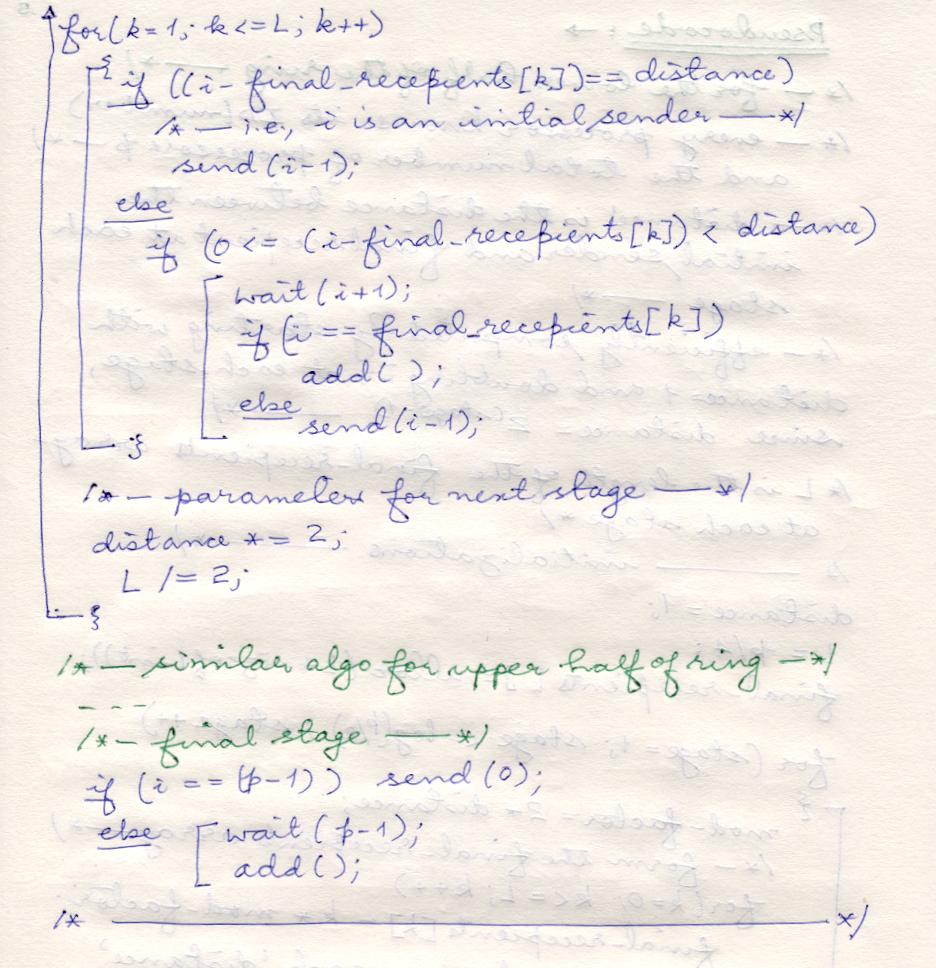 for(k=1; k<=L; k++)
{ if ((i-final_recepients[k])== distance)
/* — i.e., i is an initial sender —*/
send (i-1);
else
if (0 <= (i-final_recepients[k]) < distance)
wait (i+1);
if (i == final_recepients[k])
add( );
else
send(i-1);
}
/* — parameters for next stage —*/
distance *= 2;
L /= 2;
}
/* — similar algo for upper half of ring —*/
- - - -
/* — final stage —*/
if (i == (p-1)) send (0);
else [ wait (p-1);
add();
/* — */